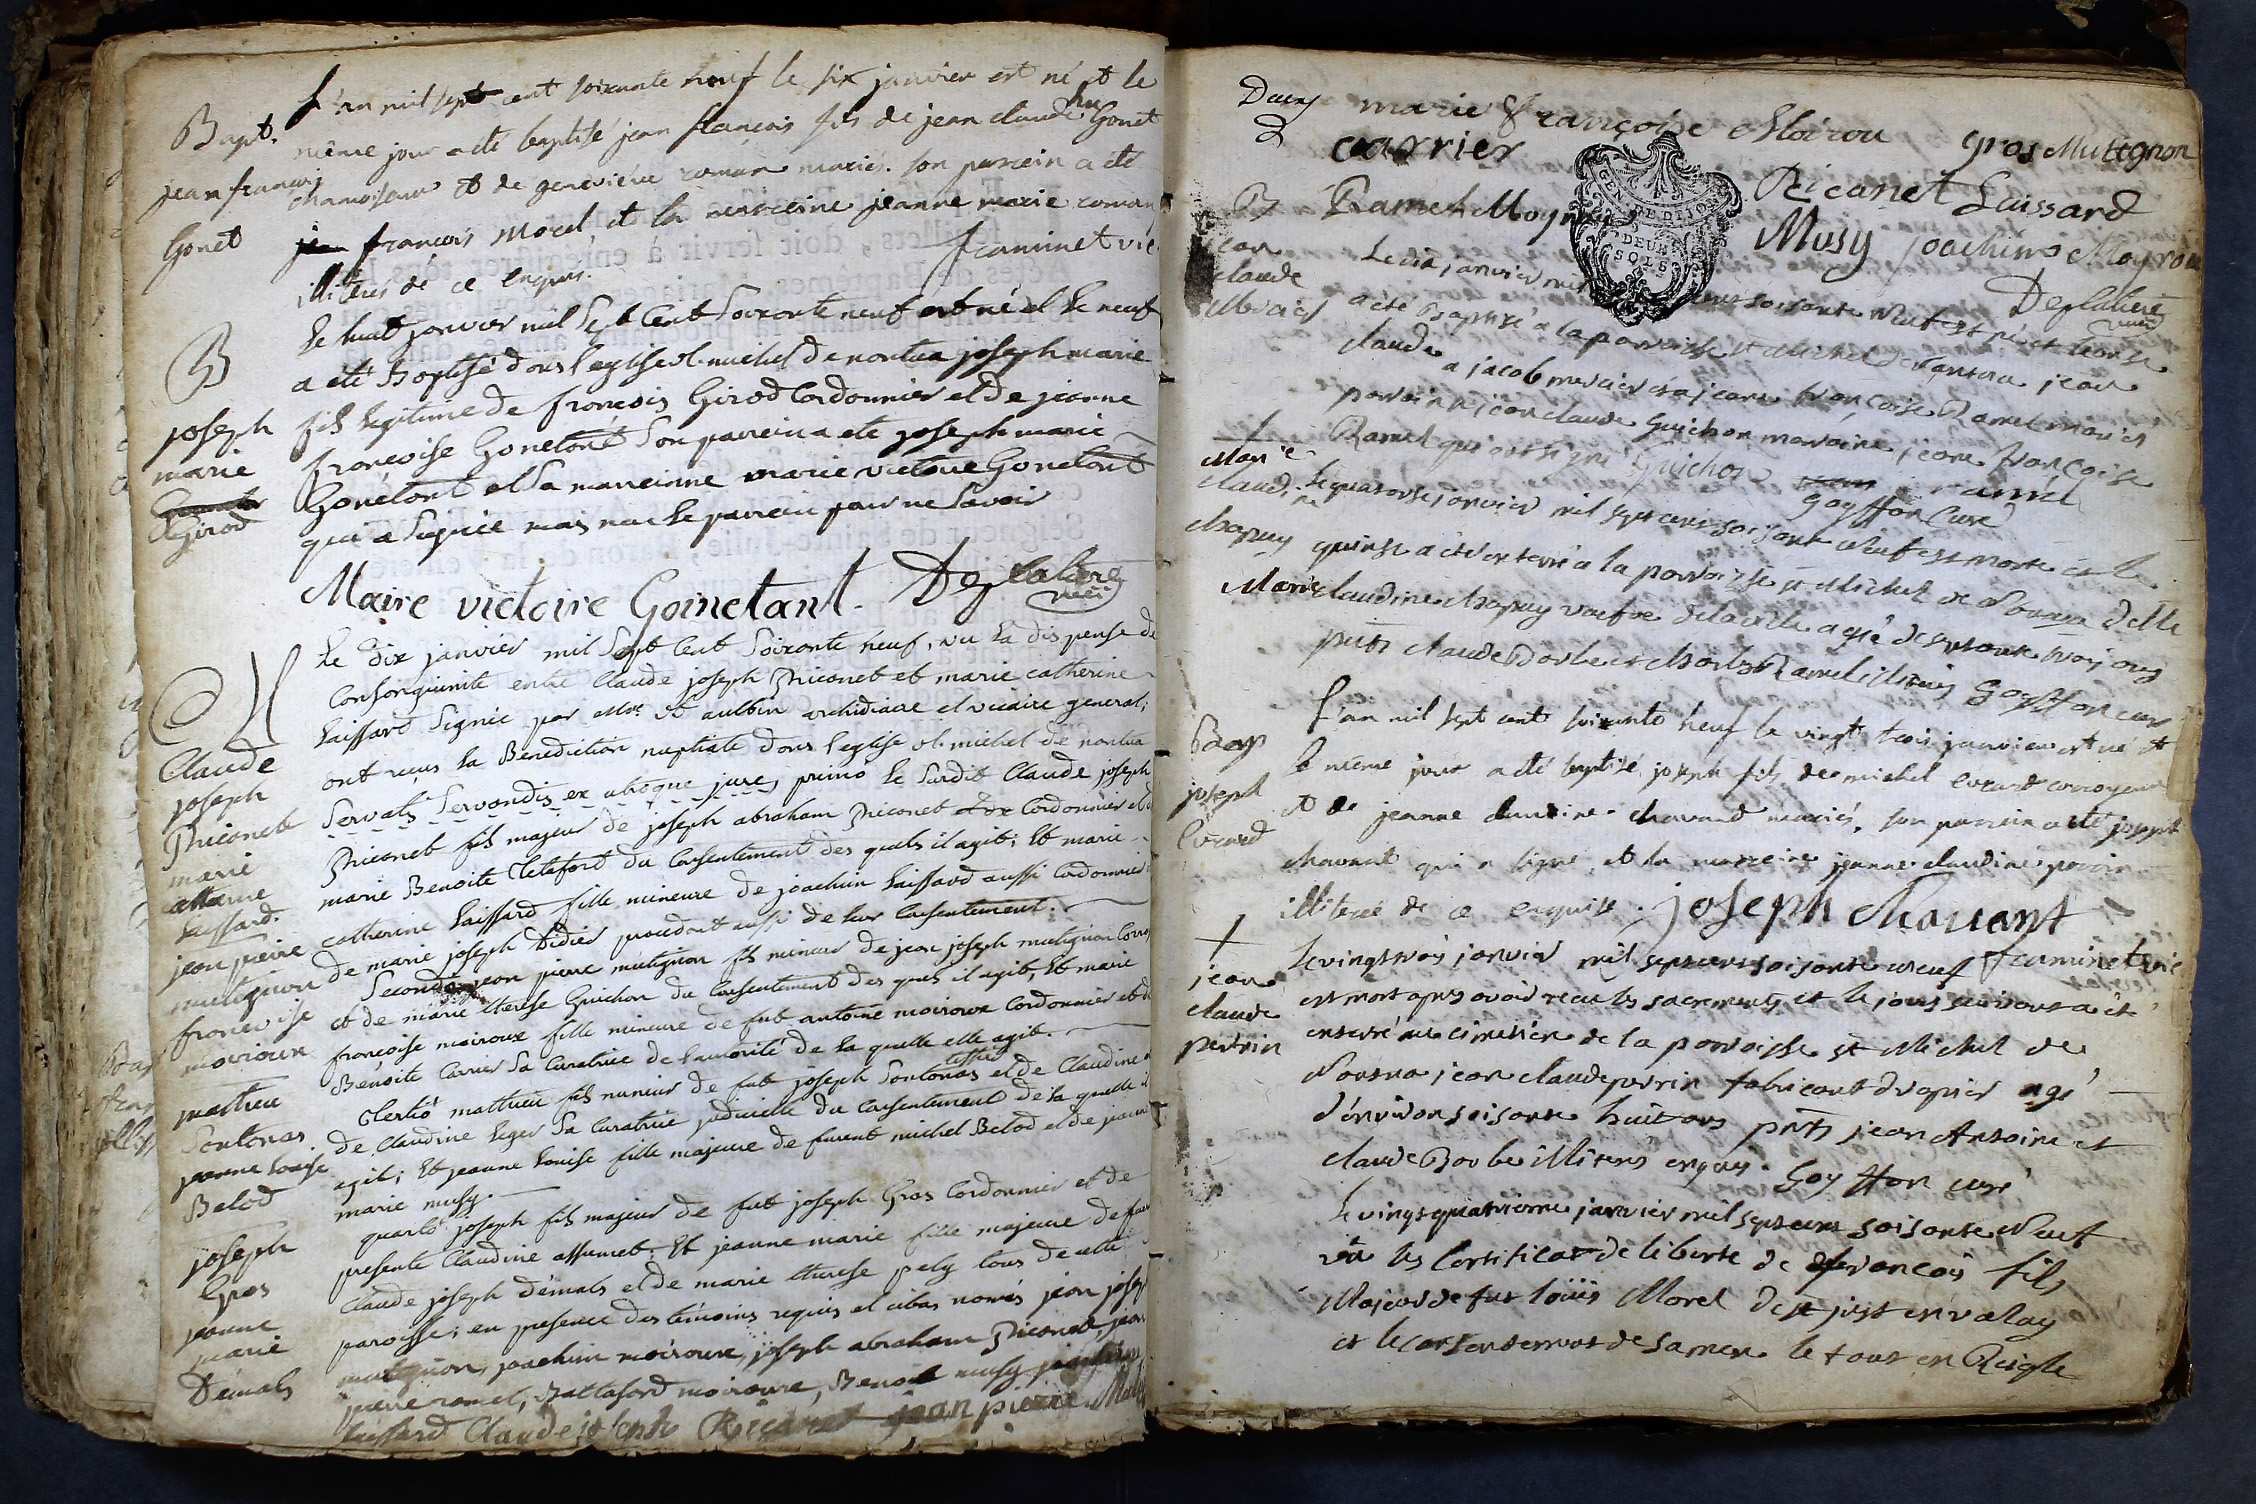 Bapt.
jean francois
Gonet
L'an mil sept cent soixante neuf le six janvier est né et le
même jour a été baptisé jean françois fils de jean claude Gonet
chamoiseur et de genevieve roman mariés. son parrein a été
françois Morel et la marreine jeanne marie roman
illiterés de ce enquis. framinet vic
B
joseph
marie
Girod
le huit janvier mil sept cent soixante neuf est né et le neuf
a eté Baptisé dans l'eglise st. michel de nantua joseph marie
fils legitime de françois Girod Cordonnier et de jeanne
françoise Gonetant Son parrein a eté joseph marie
Gonetant et sa marreinne marie victoire Gonetant
qui a signée mais non le parrein pour ne Savoir
Maire victoire Goinetant. Deplaliere
vicº
M
Claude
joseph
Ricanet
marie
catterine
Laissard.
jean pierre
mutignon
francoise
moiroux
mathieu
Sontonas.
jeanne Louise
Belod
joseph
Gros
jeanne
marie
Démals
Le dix janvier mil Sept Cent Soixante neuf, vu la dispense de
Consanguinité entre Claude joseph Ricanet et marie catherine
Laissard Signée par Mre. St aulbin archidiacre et vicaire general;
ont reçus la Benediction nuptiale dans l'eglise st. michel de nantua
Servatis Servandis ex utroque jure, primò le Susdit Claude joseph
Ricanet fils majeur de joseph abraham Ricanet Cordonnier et de
marie Benoite Cletafort du Consentement des quels il agit; Et marie
catherine Laissard fille mineure de joachim Laissard aussi Cordonnier
de marie joseph Didier procedant aussi de leur Consentement.
Secondò jean pierre mutignon fils mineur de jean joseph mutignon
et de marie therese Guichon du Consentement des quels il agit, Et marie
françoise moiroux fille mineure de fut antoine moiroux Cordonnier et de
Benoite Carrier Sa Curatrice de l'autorité de la quelle elle agit.
tertiò mathieu fils mineur de fut joseph Sontonas et de Claudine
de Claudine Leger Sa Curatrice judicielle du Consentement de la quelle il
agit; Et jeanne Louise fille majeure de furent michel Belod et de jeanne
marie musy.
quartò joseph fils majeur de fut joseph Gros Cordonnier et de
presente Claudine assumet: Et jeanne marie fille majeure de furent
Claude joseph Démals et de marie therese pely tous de cette
paroisse; en presence des témoins requis et cibas només jean joseph
mutignon, joachim moiroux, joseph abraham Ricanet, jean
pierre ramel, moiroux, Benoit musy
Laissard Claude joseph Ricanet jean pierre
marie françoise Moirou
carrier
gros Mutignon
Ramel Moyroux
Ricanet Laissard
Musy joachim Moyroux
Deplaliere
vicº
GEN. DE DIJON
DEUX
SOLS
B
jean
claude
Mercier
Le dix janvier mil sept cent soisante Neuf est né et le onse
a été Baptisé a la parroisse st Michel de Nantua jean
claude a jacob mercier et a jeane françoise Ramel mariés
parrain jean claude Guichon marraine jeane françoise
Ramel qui ont signé Guichon ramel
Goyffon Curé
Marie
claudine
chapuy
Le quatorse janvier mil sept cent soisante Neuf est morte et le
quinse a été enterré a la parroisse st Michel de Nantua Delle
Marie claudine chapuy veufve de la ville agé de septante trois ans
pnts claude Barbe et charles Ramel illiterés Goyffon curé
Bap
joseph
Evrard
L'an mil sept cent soixante neuf le vingt trois janvier est né et
le même jour a été baptisé joseph fils de michel evrard corroyeur
et de jeanne claudine chavant mariés. son parrein a été joseph
chavant qui a signé et la marreine jeanne claudine perrin
illiterée de ce enquise. joseph Chavant
framinet vic
jean
claude
perrin
Le vingt trois janvier mil sept cent soisante neuf
est mort apres avoir recu les sacrements et le jour suivant a été
enterré au cimetière de la parroisse st Michel de
Nantua jean claude perrin fabricant drapier agé
d'environ soisante huit ans pnts jean Antoine et
claude Barbe illiterés enquis. Goyffon curé
Le vingt quatrieme janvier mil sept cent soisante Neuf
vû les Certificat de liberté de françois fils
Majeur de fut Loüis Morel de st just en valay
et le consentement de sa mere le tout en Reigle